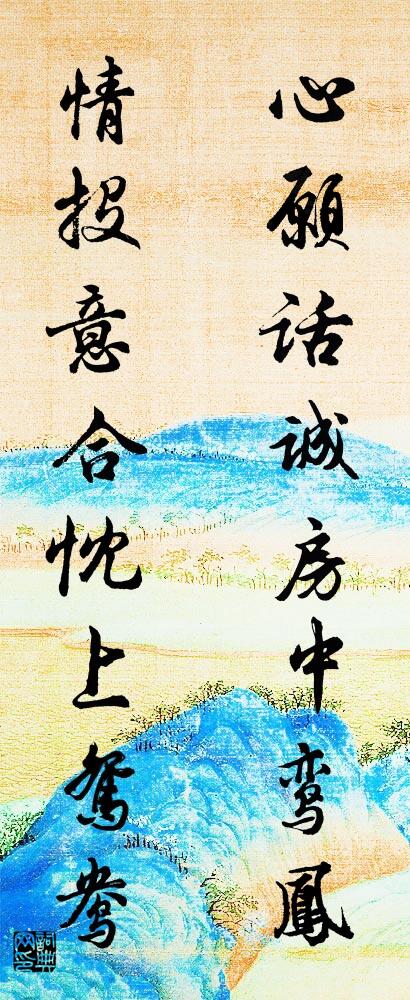 心願话诚房中鸾鳳
情投意合忱上鴛鸯